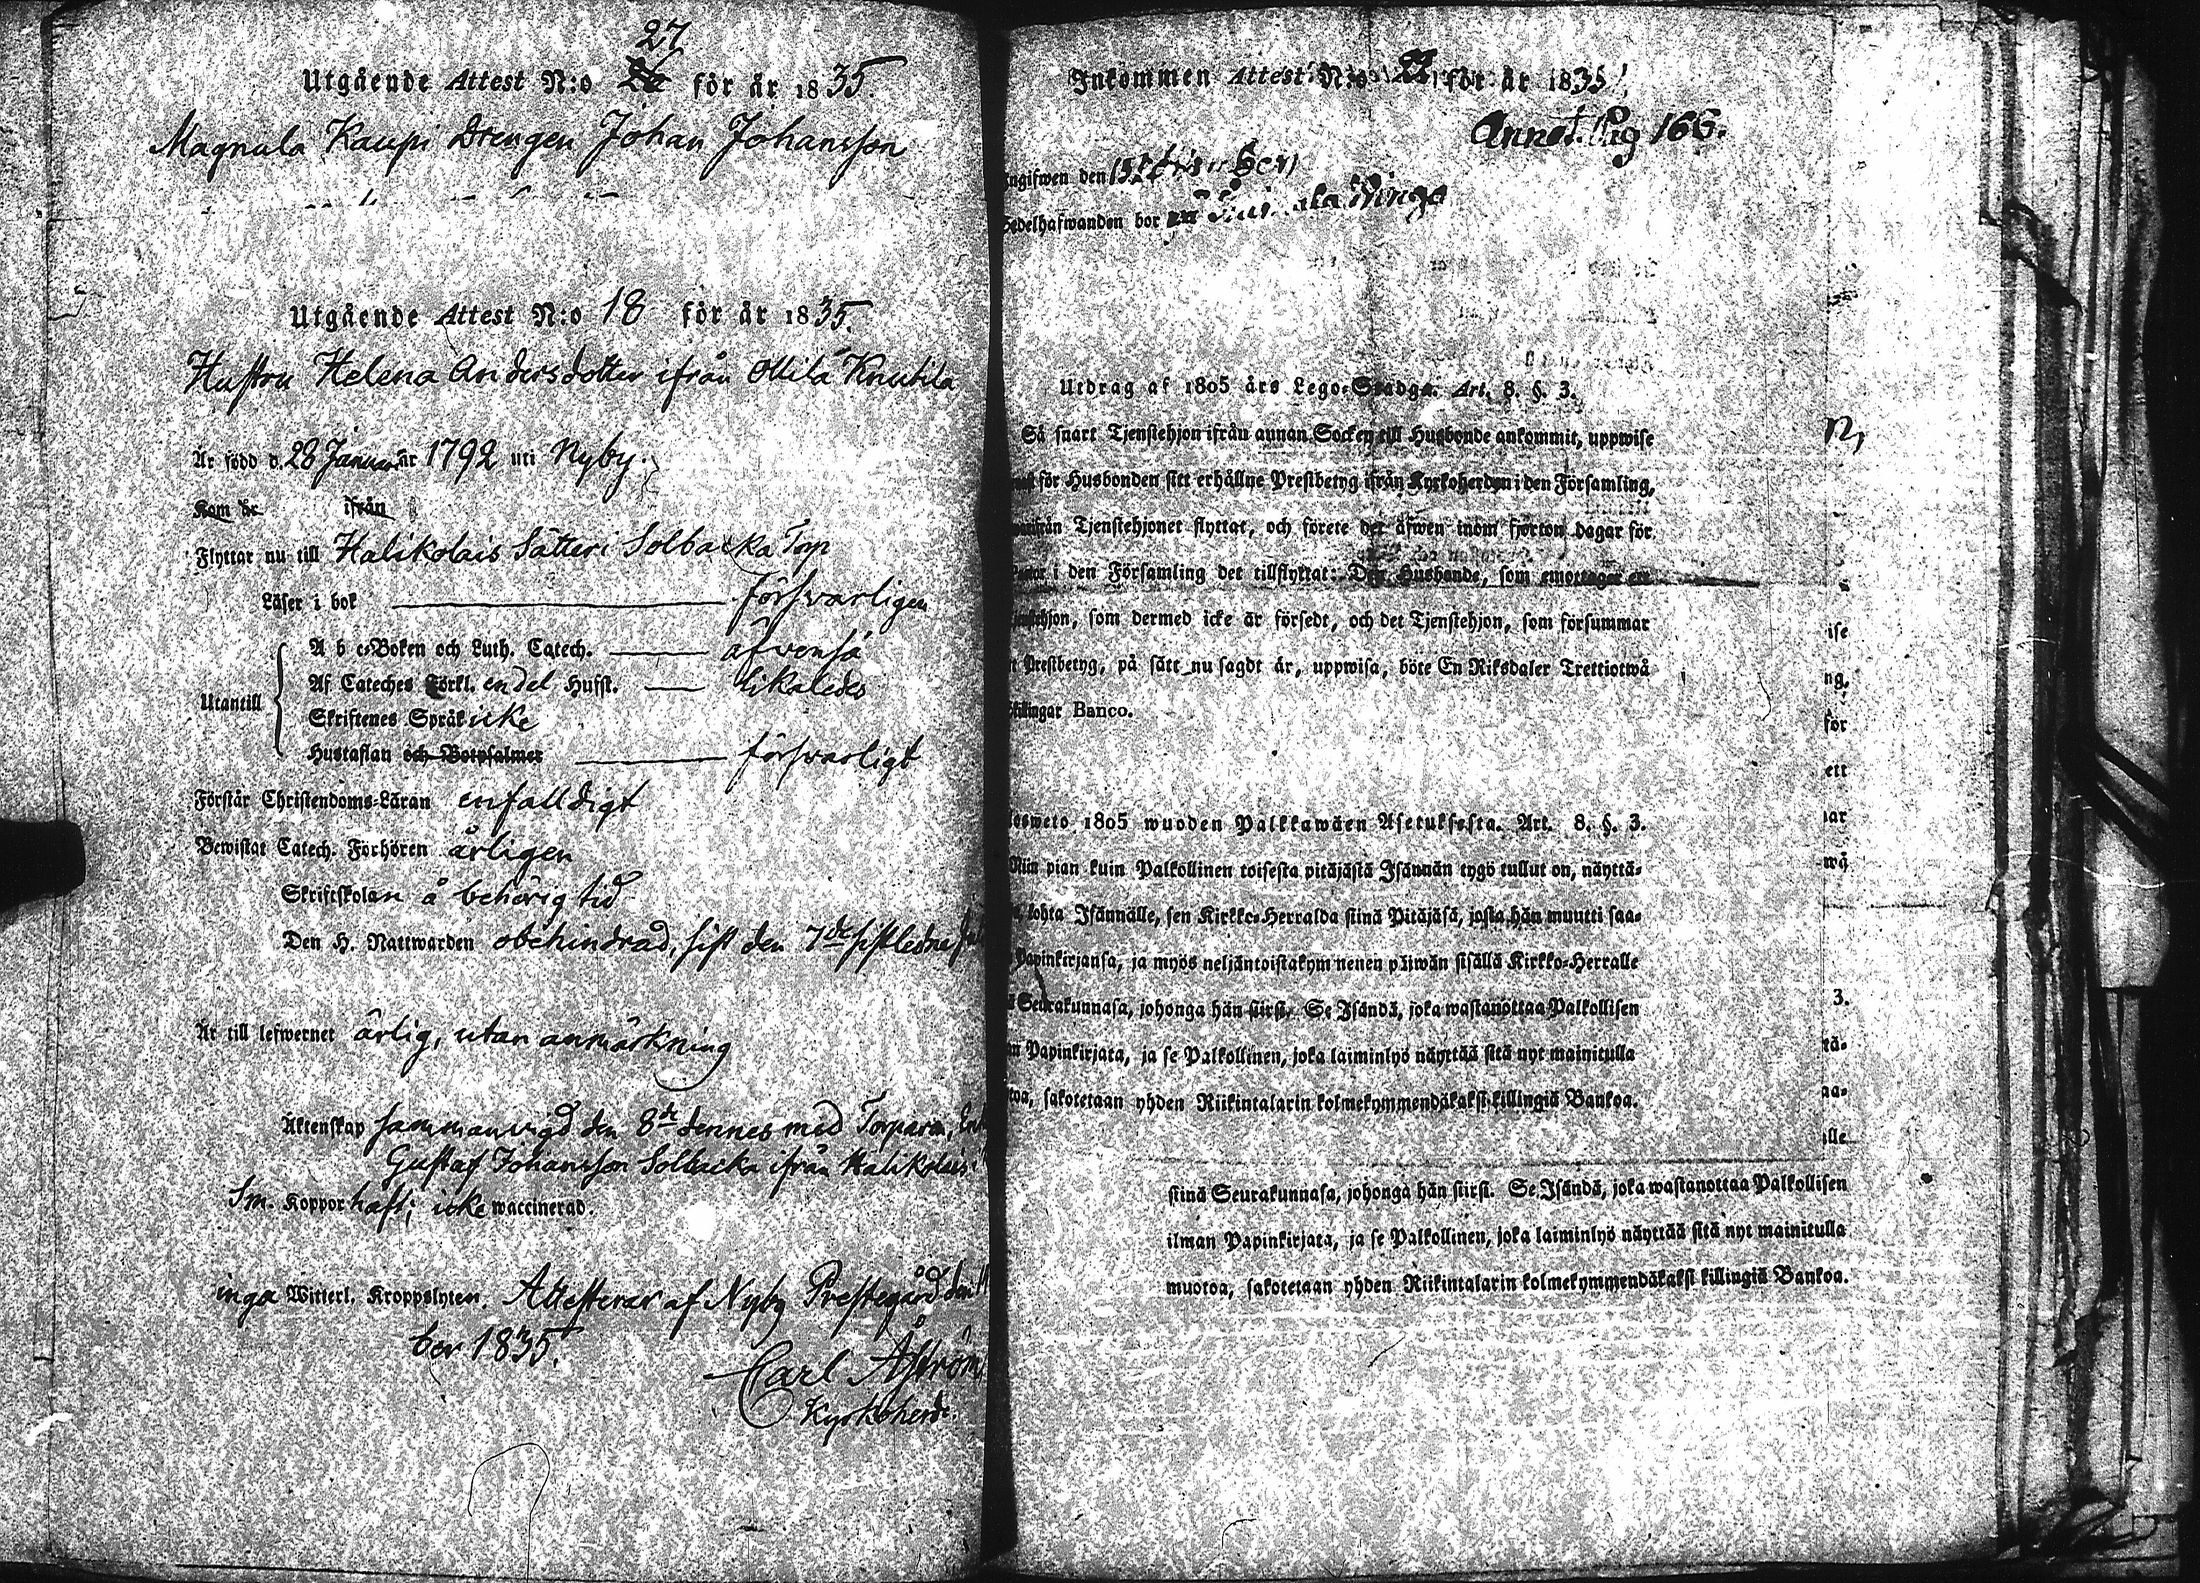 27
Utgående Attest N:o 26 för år 1835.
Magnula Kaupi Drengen Johan Johansson
Utgående Attest N:o 18 för år 1835.
Hustru Helena Andersdotter ifrån Ollila Knutila
Är född d. 28 Januar. år 1792 uti Nyby.
Kom år ifrån
Flyttar nu till Halikolais Säteri Solbacka Torp
Läser i bok försvarligen
A b c-Boken och Luth. Catech. äfvenså
Af Cateches Förkl. en del Hufst. likaledes
Utantill
Skriftenes Språk icke
Hustaflan och Botpsalmer försvarligt
Förstår Christendoms-Läran enfalldigt
Bewistat Catech. Förhören årligen
Skriftskolan å behörig tid
Den H. Nattwarden obehindrad, sist den 7de sistledne
Är till lefwernet ärlig, utan anmärkning
Äktenskap sammanvigd den 8de dennes med Torparen,
Gustaf Johansson Solbacka ifrån Halikolais
Sm. Koppor haft; icke waccinerad.
inga Witterl. Kroppslyten. Attesterar af Nyby Prestegård den
ber 1835.
Carl Åström
Kyrkoherde.
Inkommen Attest N:o 22 för år 1835
Annot. Pag 166.
Ingifwen den
Sedelhafwanden bor
Utdrag af 1805 års Lego-Stadga. Art. 8. §. 3.
Så snart Tjenstehjon ifrån annan Socken till Husbonde ankommit, uppwise
för Husbonden sitt erhållne Prestbetyg ifrån Kyrkoherden i den Församling,
Tjenstehjonet flyttat, och förete det äfwen inom fjorton dagar för
i den Församling det tillflyttat: Den Husbonde, som emottager ett
som dermed icke är försedt, och det Tjenstehjon, som försummar
Prestbetyg, på sätt nu sagdt är, uppwisa, böte En Riksdaler Trettiotwå
Skillingar Banco.
1805 wuoden Palkkawäen Asetuksesta. Art. 8. §. 3.
Niin pian kuin Palkollinen toisesta pitäjästä Isännän tygö tullut on, näyttä-
kohta Isännälle, sen Kirkko-Herralda siinä Pitäjäsä, josta hän muutti saa-
Papinkirjansa, ja myös neljäntoistakymmenen päiwän sisällä Kirkko-Herralle
Seurakunnasa, johonga hän siirsi. Se Isändä, joka wastanottaa Palkollisen
Papinkirjata, ja se Palkollinen, joka laiminlyö näyttää sitä nyt mainitulla
sakotetaan yhden Riikintalarin kolmekymmendäkaksi killingiä Bankoa.
siinä Seurakunnasa, johonga hän siirsi. Se Isändä, joka wastanottaa Palkollisen
ilman Papinkirjata, ja se Palkollinen, joka laiminlyö näyttää sitä nyt mainitulla
muotoa, sakotetaan yhden Riikintalarin kolmekymmendäkaksi killingiä Bankoa.
ise
ng,
för
ett
nar
wå
3.
tä-
aa-
lle